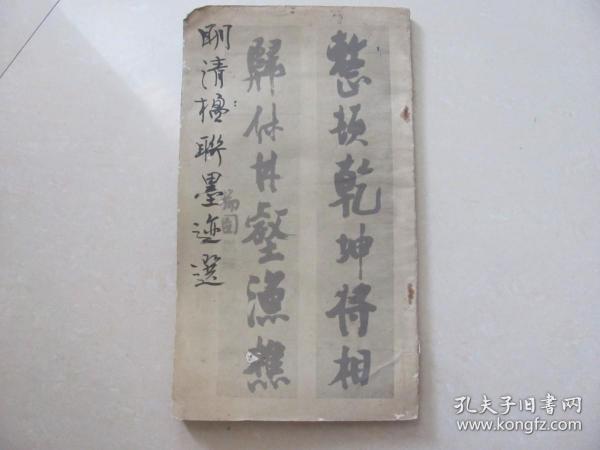 整頓乾坤將相
歸休林壑漁樵
瑞圖
明清楹聯墨迹選
孔夫子旧书网
www.kongfz.com